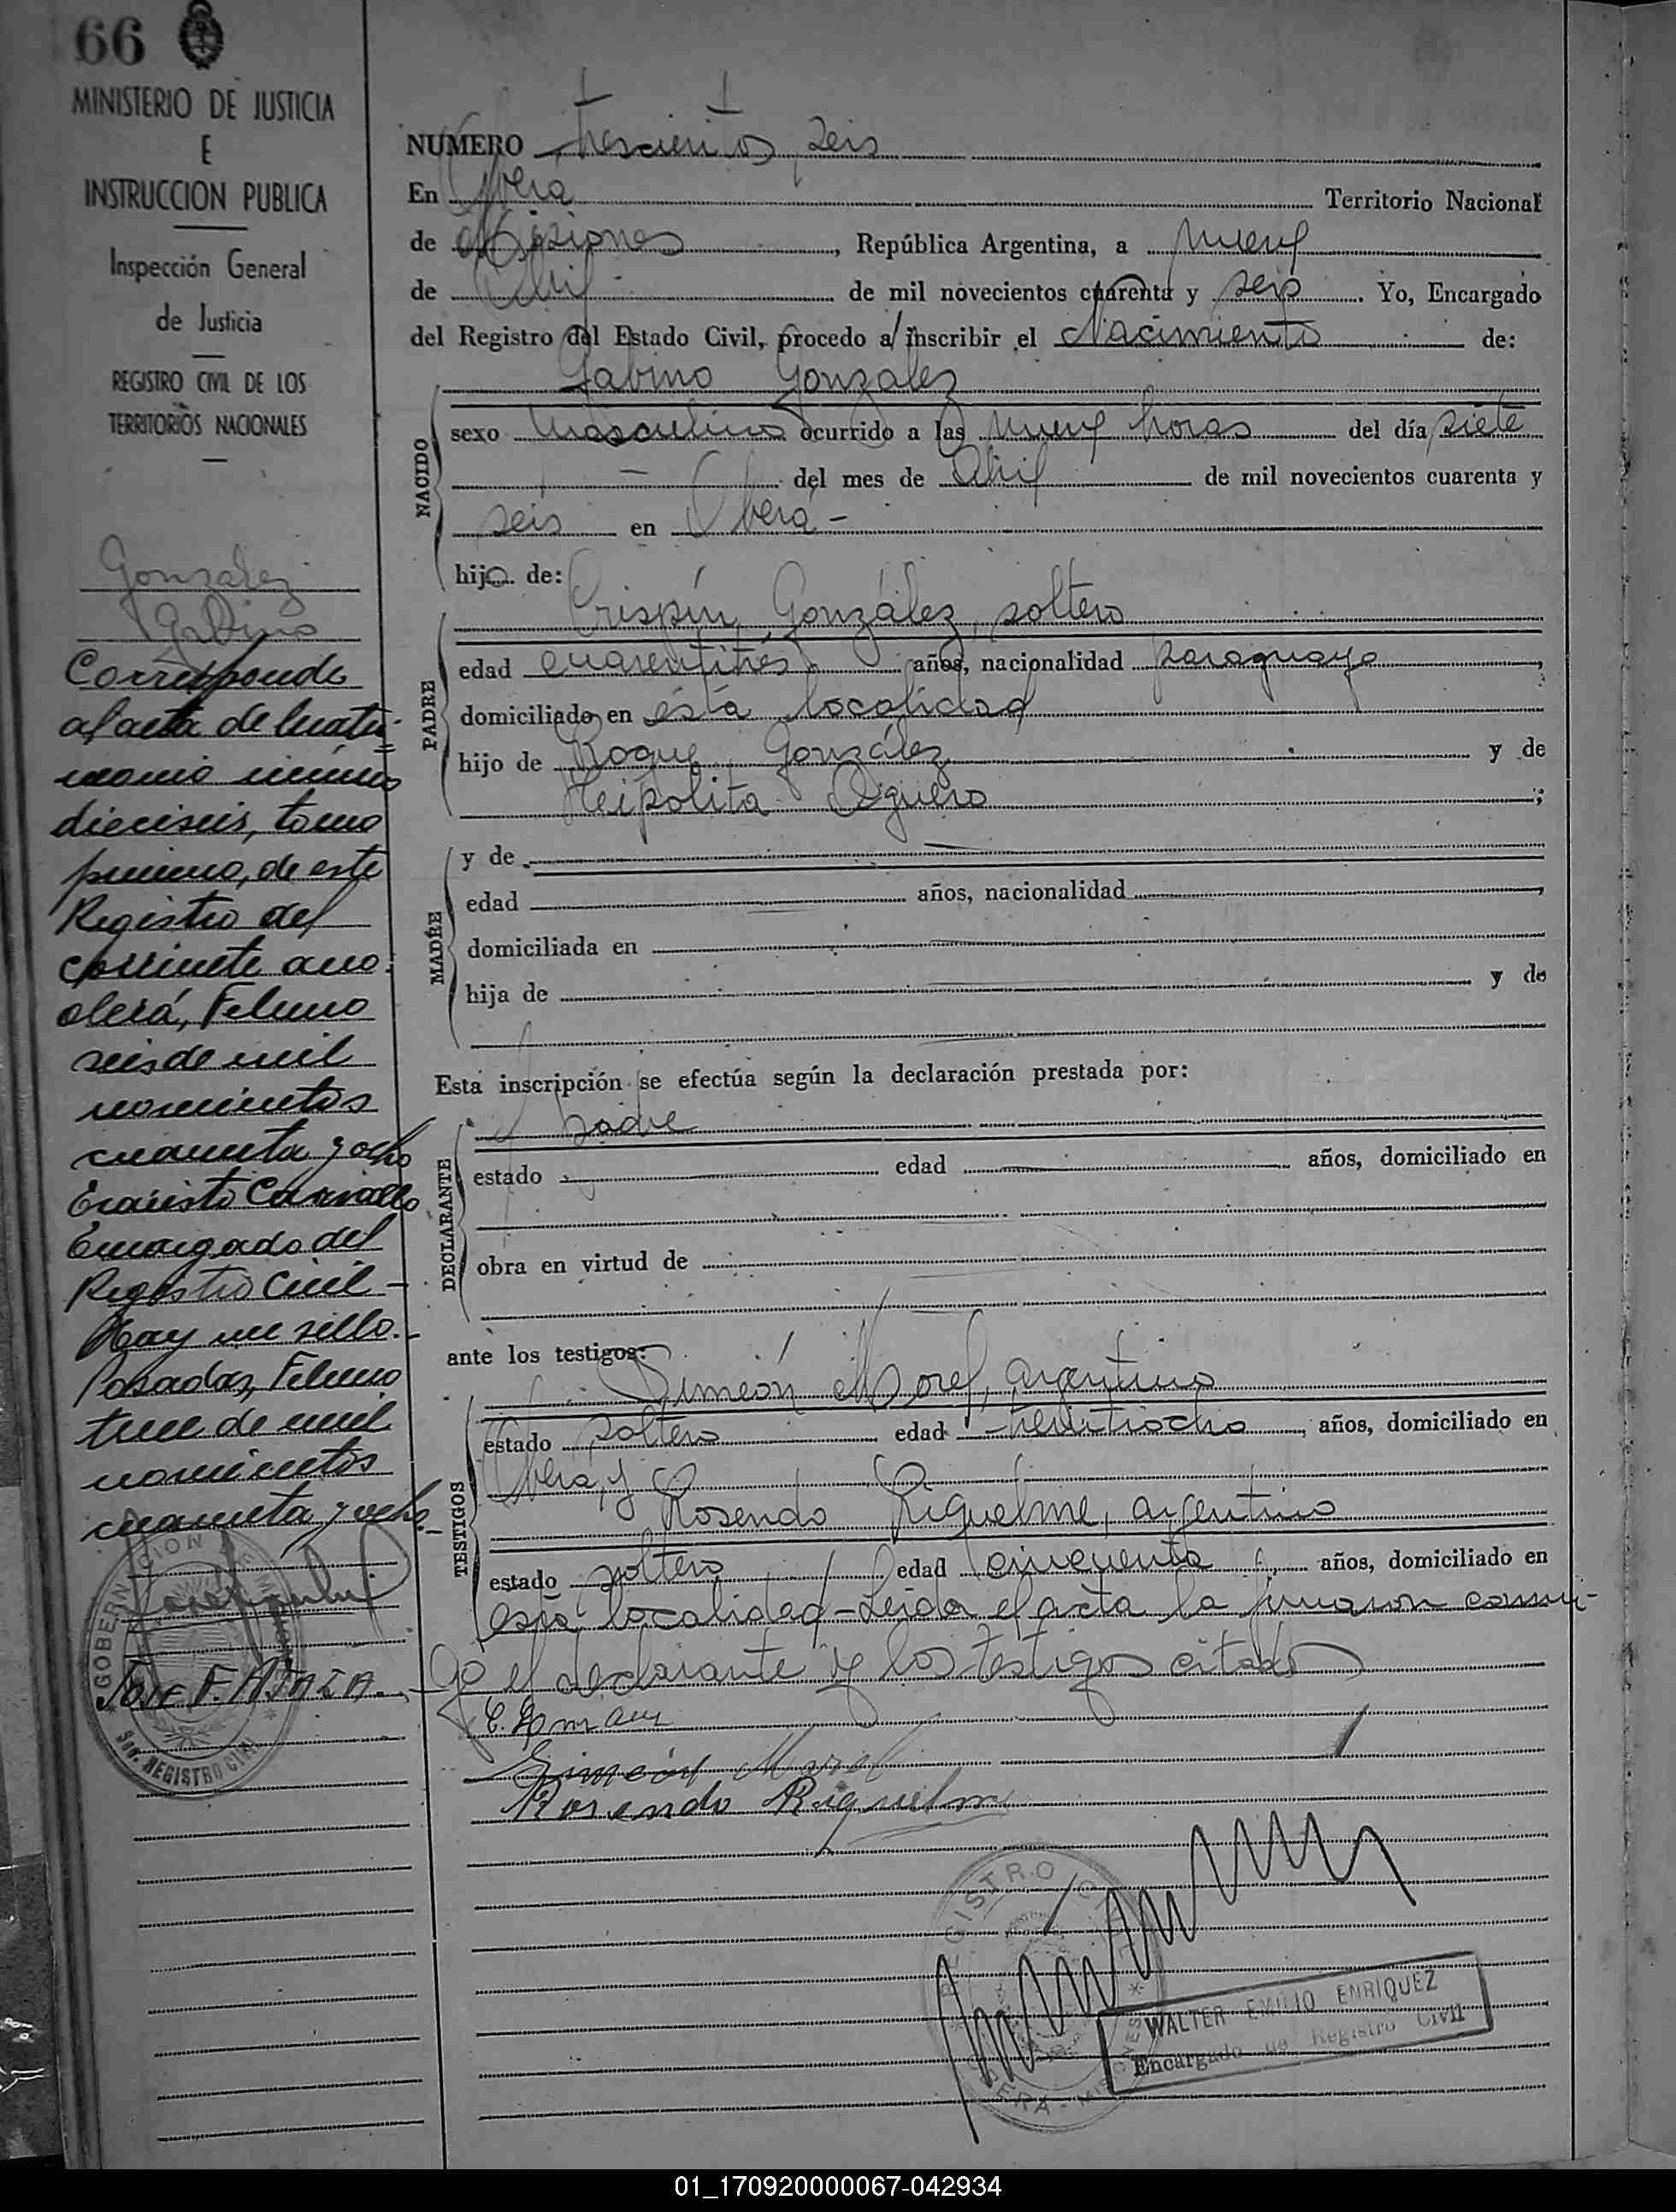 66
MINISTERIO DE JUSTICIA
E
INSTRUCCION PUBLICA
Inspección General
de Justicia
REGISTRO CIVIL DE LOS
TERRITORIOS NACIONALES
Gonzalez
Gabino
Corresponde
al acta de matri-
monio número
dieciseis, tomo
primero, de este
Registro del
corriente año.
Oberá, Febrero
seis de mil
novecientos
cuarenta y ocho
Evaristo
Encargado del
Registro Civil -
Hay un sello.-
Posadas, Febrero
trece de mil
novecientos
cuarenta y ocho.-
GOBERNACION
JOSE F.
REGISTRO CIVIL
NUMERO trescientos seis
En Oberá Territorio Nacional
de Misiones, República Argentina, a nueve
de Abril de mil novecientos cuarenta y seis. Yo, Encargado
del Registro del Estado Civil, procedo a inscribir el Nacimiento de:
Gabino Gonzalez
NACIDO
sexo masculino ocurrido a las nueve horas del día siete
- del mes de Abril de mil novecientos cuarenta y
seis en Oberá -
hijo de:
Crispín González, soltero
PADRE
edad cuarentitrés años, nacionalidad paraguaya,
domiciliado en ésta localidad
hijo de Roque González y de
Heipolita Agüero;
MADRE
y de
edad años, nacionalidad
domiciliada en
hija de y de
Esta inscripción se efectúa según la declaración prestada por:
padre
DECLARANTE
estado edad años, domiciliado en
obra en virtud de
ante los testigos:
Simeón Morel, argentino
TESTIGOS
estado soltero edad treintiocho, años, domiciliado en
Oberá, y
Rosendo Riquelme, argentino
estado soltero edad cincuenta años, domiciliado en
esta localidad - Leida el acta la firmaron conmi-
go el declarante y los testigos citados
Simeón Morel
Rosendo Riquelme
REGISTRO CIVIL
OBERA - MISIONES
WALTER EMILIO ENRIQUEZ
Encargado de Registro Civil
01_170920000067-042934